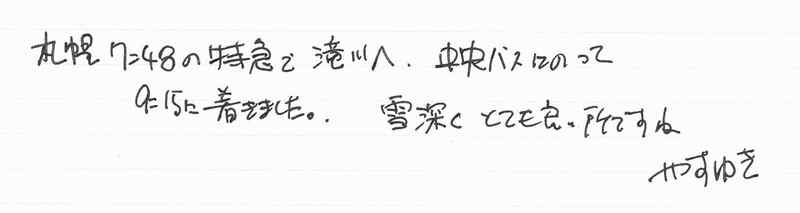 札幌7:48の特急で滝川へ. 中央バスにのって
9:15に着きました。. 雪深くとても良い所ですね
やすゆき